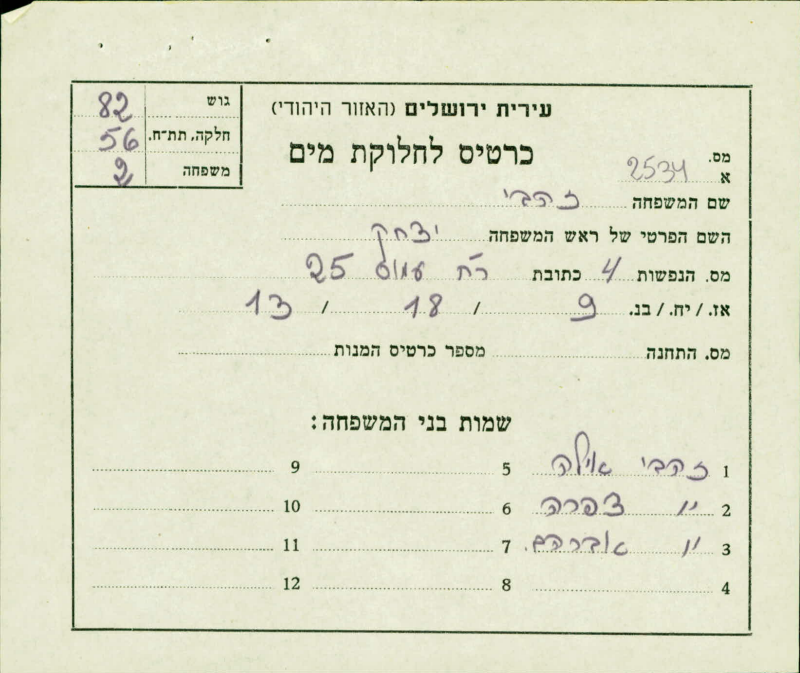 עירית ירושלים (האזור היהודי)
כרטיס לחלוקת מים
גוש 82
חלקה, תת־ח. 56
משפחה 2
מס. א 2534
שם המשפחה זהבי
השם הפרטי של ראש המשפחה יצחק
מס. הנפשות 4 כתובת רח עמוס 25
אז. / יח. / בנ. 9 / 18 / 13
מס. התחנה מספר כרטיס המנות
שמות בני המשפחה:
1 זהבי אילה 5 9
2 " צפרה 6 10
3 " אברהם. 7 11
4 8 12